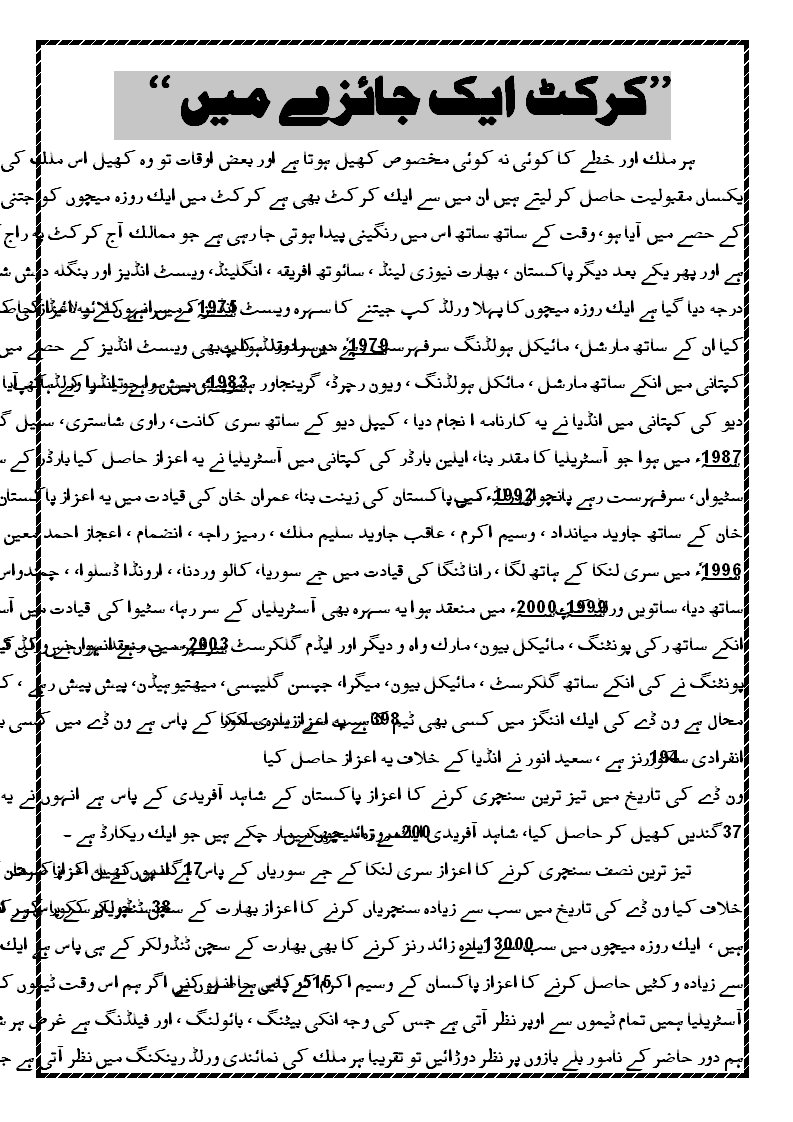 ”کرکٹ ایک جائزے میں“
ہر ملک اور خطے کا کوئی نہ کوئی مخصوص کھیل ہوتا ہے اور بعض اوقات تو وہ کھیل اس ملک کی
یکساں مقبولیت حاصل کر لیتے ہیں ان میں سے ایک کرکٹ بھی ہے کرکٹ میں ایک روزہ میچوں کو جتنی
کے حصے میں آیا ہو، وقت کے ساتھ ساتھ اس میں رنگینی پیدا ہوتی جا رہی ہے جو ممالک آج کرکٹ پہ راج
ہے اور پھر یکے بعد دیگر پاکستان ، بھارت نیوزی لینڈ ، سائوتھ افریقہ ، انگلینڈ، ویسٹ انڈیز اور بنگلہ دیش
درجہ دیا گیا ہے ایک روزہ میچوں کا پہلا ورلڈ کپ جیتنے کا سہرہ ویسٹ 1975
کیا ان کے ساتھ مارشل، مائیکل ہولڈنگ سرفہرست 1979 بھی ویسٹ انڈیز کے حصے میں
کپتانی میں انکے ساتھ مارشل ، مائکل ہولڈنگ ، ویون رچرڈ، گرینجاور 1983
دیو کی کپتانی میں انڈیا نے یہ کارنامہ ا نجام دیا ، کیپل دیو کے ساتھ سری کانت، راوی شاستری، سنیل
1987ء میں ہوا جو آسٹریلیا کا مقدر بنا، ایلین بارڈر کی کپتانی میں آسٹریلیا نے یہ اعزاز حاصل کیا بارڈر کے
سٹیواں، سرفہرست رہے پانچواں 1992ء پاکستان کی زینت بنا، عمران خان کی قیادت میں یہ اعزاز پاکستان
خان کے ساتھ جاوید میانداد ، وسیم اکرم ، عاقب جاوید سلیم ملک ، رمیز راجہ ، انضمام ، اعجاز احمد معین
1996ء میں سری لنکا کے ہاتھ لگا ، رانا ٹنگا کی قیادت میں جے سوریا، کالو وردنا، ، ارونڈا ڈسلوا، ، چمنداواس
ساتھ دیا، ساتویں 1999 2000ء میں منعقد ہوا یہ سہرہ بھی آسٹریلیاں کے سر رہا، سٹیوا کی قیادت میں
انکے ساتھ رکی پونٹنگ ، مائیکل بیون، مارک واہ و دیگر اور ایڈم گلکرسٹ 2003
پونٹنگ نے کی انکے ساتھ گلکرسٹ ، مائیکل بیون، میگرا، جیسن گلیپسی، میتھیوہیڈن، پیش پیش رہے ،
محال ہے ون ڈے کی ایک اننگز میں کسی بھی ٹیم 398 کے پاس ہے ون ڈے میں کسی
انفرادی 194 رنز ہے ، سعید انور نے انڈیا کے خلاف یہ اعزاز حاصل کیا
ون ڈے کی تاریخ میں تیز ترین سنچری کرنے کا اعزاز پاکستان کے شاہد آفریدی کے پاس ہے انہوں نے یہ
37گندیں کھیل کر حاصل کیا، شاہد آفریدی 200 مار چکے ہیں جو ایک ریکارڈ ہے ۔
تیز ترین نصف سنچری کرنے کا اعزاز سری لنکا کے جے سوریاں کے پاس 17
خلاف کیا ون ڈے کی تاریخ میں سب سے زیادہ سنچریاں کرنے کا اعزاز بھارت کے سچن 38
ہیں ، ایک روزہ میچوں میں سب سے 13000 زائد رنز کرنے کا بھی بھارت کے سچن ٹنڈولکر کے ہی پاس ہے ایک
سے زیادہ وکٹیں حاصل کرنے کا اعزاز پاکسان کے وسیم اکرم 515 اگر ہم اس وقت ٹیموں
آسٹریلیا ہمیں تمام ٹیموں سے اوپر نظر آتی ہے جس کی وجہ انکی بیٹنگ ، بائولنگ ، اور فیلڈنگ ہے غرض ہر
ہم دور حاضر کے نامور بلے بازوں پر نظر دوڑائیں تو تقریبا ہر ملک کی نمائندی ورلڈ رینکنگ میں نظر آتی ہے